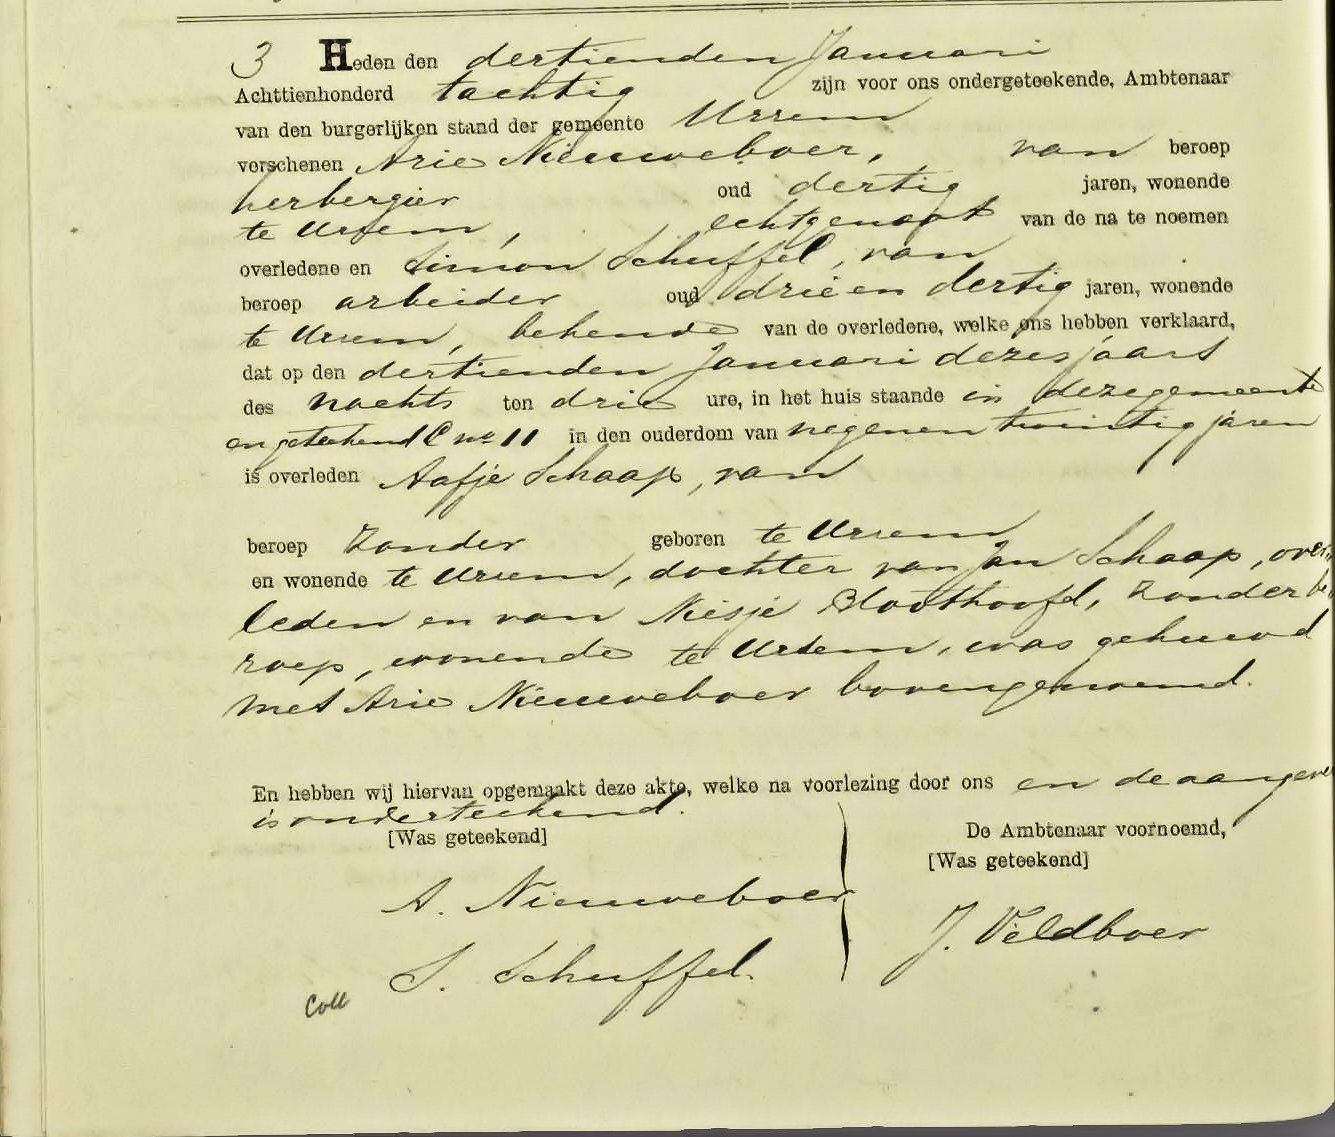 3 Heden den dertienden Januari
Achttienhonderd tachtig zijn voor ons ondergeteekende, Ambtenaar
van den burgerlijken stand der gemeente Ursem
verschenen Arie Nieuweboer, van beroep
herbergier oud dertig jaren, wonende
te Ursem, echtgenoot van de na te noemen
overledene en Simon Schuffel, van
beroep arbeider oud drie en dertig jaren, wonende
te Ursem, bekende van de overledene, welke ons hebben verklaard,
dat op den dertienden Januari dezes jaars
des nachts ten drie ure, in het huis staande in deze gemeente
en geteekend C no 11 in den ouderdom van negen en twintig jaren
is overleden Aafje Schaap, van
beroep zonder geboren te Ursem
en wonende te Ursem, dochter van Jan Schaap, over
leden en van Niesje Bloothoofd, zonder be
roep, wonende te Ursem, was gehuwd
met Arie Nieuweboer bovengenoemd.
En hebben wij hiervan opgemaakt deze akte, welke na voorlezing door ons en de aangevers
is onderteekend.
[Was geteekend] De Ambtenaar voornoemd,
[Was geteekend]
A. Nieuweboer
J. Veldboer
S. Schuffel.
Coll